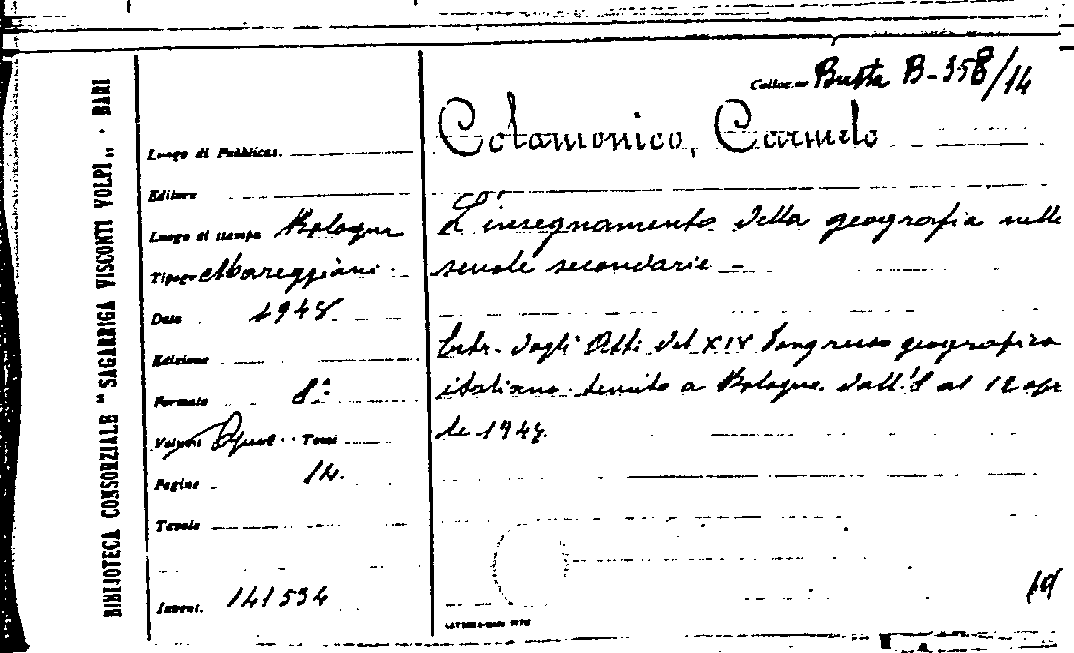 BIBLIOTECA CONSORZIALE "SAGARRIGA VISCONTI VOLPI„ - BARI
Colloc. Busta B-358/14
Colamonico, Carmelo
L'insegnamento della geografia nelle
scuole secondarie -
Estr. dagli Atti del XIV Congresso geografico
italiano tenuto a Bologna dall'8 al 12 apri
le 1947.
Luogo di Pubblicaz.
Editore
Luogo di stampa Bologna
Tipogr. Mareggiani
Data 1948
Edizione
Formato 8°
Volumi Opusc. Tomi
Pagine 14.
Tavole
Invent. 141534